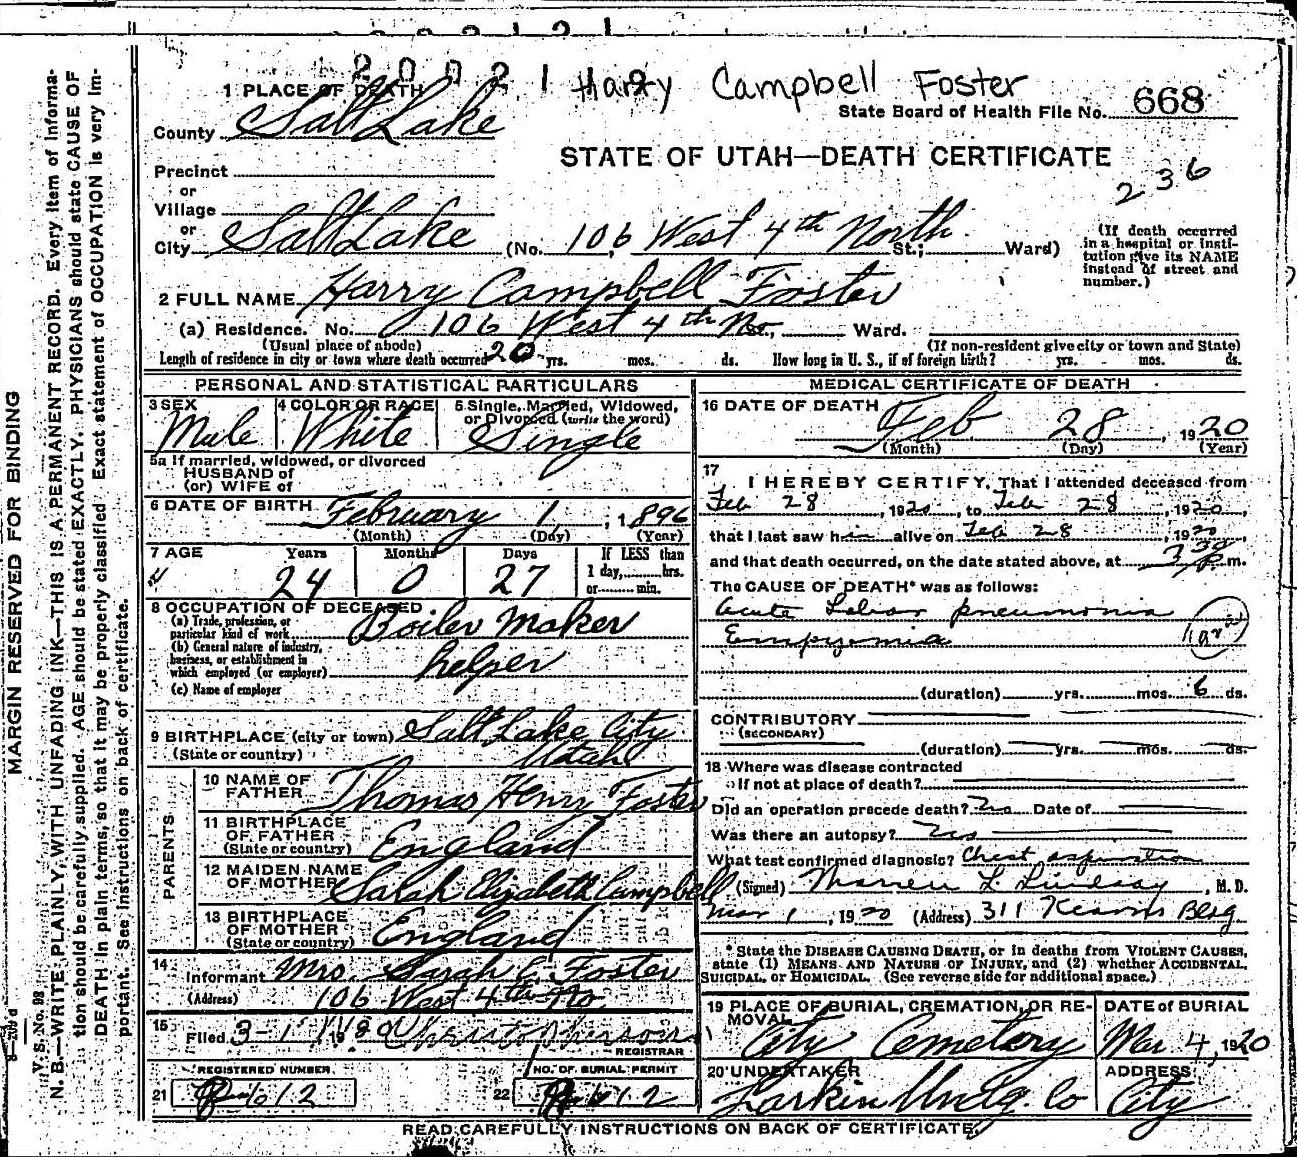 2 0 0 2 1 Harry Campbell Foster
1 PLACE OF DEATH
State Board of Health File No. 668
County Salt Lake
STATE OF UTAH—DEATH CERTIFICATE
236
Precinct
or
Village
or
City Salt Lake (No. 106 West 4th North St.; Ward)
(If death occurred in a hospital or institution give its NAME instead of street and number.)
2 FULL NAME Harry Campbell Foster
(a) Residence. No. 106 West 4th No., Ward.
(Usual place of abode) (If non-resident give city or town and State)
Length of residence in city or town where death occurred 20 yrs. mos. ds. How long in U. S., if of foreign birth? yrs. mos. ds.
PERSONAL AND STATISTICAL PARTICULARS
3 SEX Male
4 COLOR OR RACE White
5 Single, Married, Widowed, or Divorced (write the word) Single
5a If married, widowed, or divorced
HUSBAND of
(or) WIFE of
6 DATE OF BIRTH February 1, 1896
(Month) (Day) (Year)
7 AGE Years Months Days If LESS than
24 0 27 1 day,......hrs.
or......min.
8 OCCUPATION OF DECEASED
(a) Trade, profession, or particular kind of work Boiler Maker
(b) General nature of industry, business, or establishment in which employed (or employer) helper
(c) Name of employer
9 BIRTHPLACE (city or town) Salt Lake City
(State or country) Utah
PARENTS
10 NAME OF FATHER Thomas Henry Foster
11 BIRTHPLACE OF FATHER (State or country) England
12 MAIDEN NAME OF MOTHER Sarah Elizabeth Campbell
13 BIRTHPLACE OF MOTHER (State or country) England
14 Informant Mrs. Sarah E. Foster
(Address) 106 West 4th No
15 Filed 3-1 19 Christopherson
REGISTRAR
REGISTERED NUMBER NO. OF BURIAL PERMIT
21 612 22 612
MEDICAL CERTIFICATE OF DEATH
16 DATE OF DEATH Feb 28, 1920
(Month) (Day) (Year)
17 I HEREBY CERTIFY, That I attended deceased from
Feb 28, 1920, to Feb 28, 1920,
that I last saw him alive on Feb 28, 1920,
and that death occurred, on the date stated above, at 3 30 P m.
The CAUSE OF DEATH* was as follows:
Acute Lobar pneumonia
Empyemia
(duration) yrs. mos. 6 ds.
CONTRIBUTORY
(SECONDARY)
(duration) yrs. mos. ds.
18 Where was disease contracted
if not at place of death?
Did an operation precede death? No Date of
Was there an autopsy?
What test confirmed diagnosis? Chest aspiration
(Signed) Warren L. Lindsay, M. D.
Mar 1, 1920 (Address) 311 Kearns Bldg.
* State the DISEASE CAUSING DEATH, or in deaths from VIOLENT CAUSES, state (1) MEANS AND NATURE OF INJURY, and (2) whether ACCIDENTAL, SUICIDAL, or HOMICIDAL. (See reverse side for additional space.)
19 PLACE OF BURIAL, CREMATION, OR REMOVAL City Cemetery
DATE of BURIAL Mar 4, 1920
20 UNDERTAKER Larkin Undtg Co
ADDRESS City
READ CAREFULLY INSTRUCTIONS ON BACK OF CERTIFICATE
MARGIN RESERVED FOR BINDING
V. S. No. 98
N. B.—WRITE PLAINLY, WITH UNFADING INK—THIS IS A PERMANENT RECORD. Every item of information should be carefully supplied. AGE should be stated EXACTLY. PHYSICIANS should state CAUSE OF DEATH in plain terms, so that it may be properly classified. Exact statement of OCCUPATION is very important. See instructions on back of certificate.